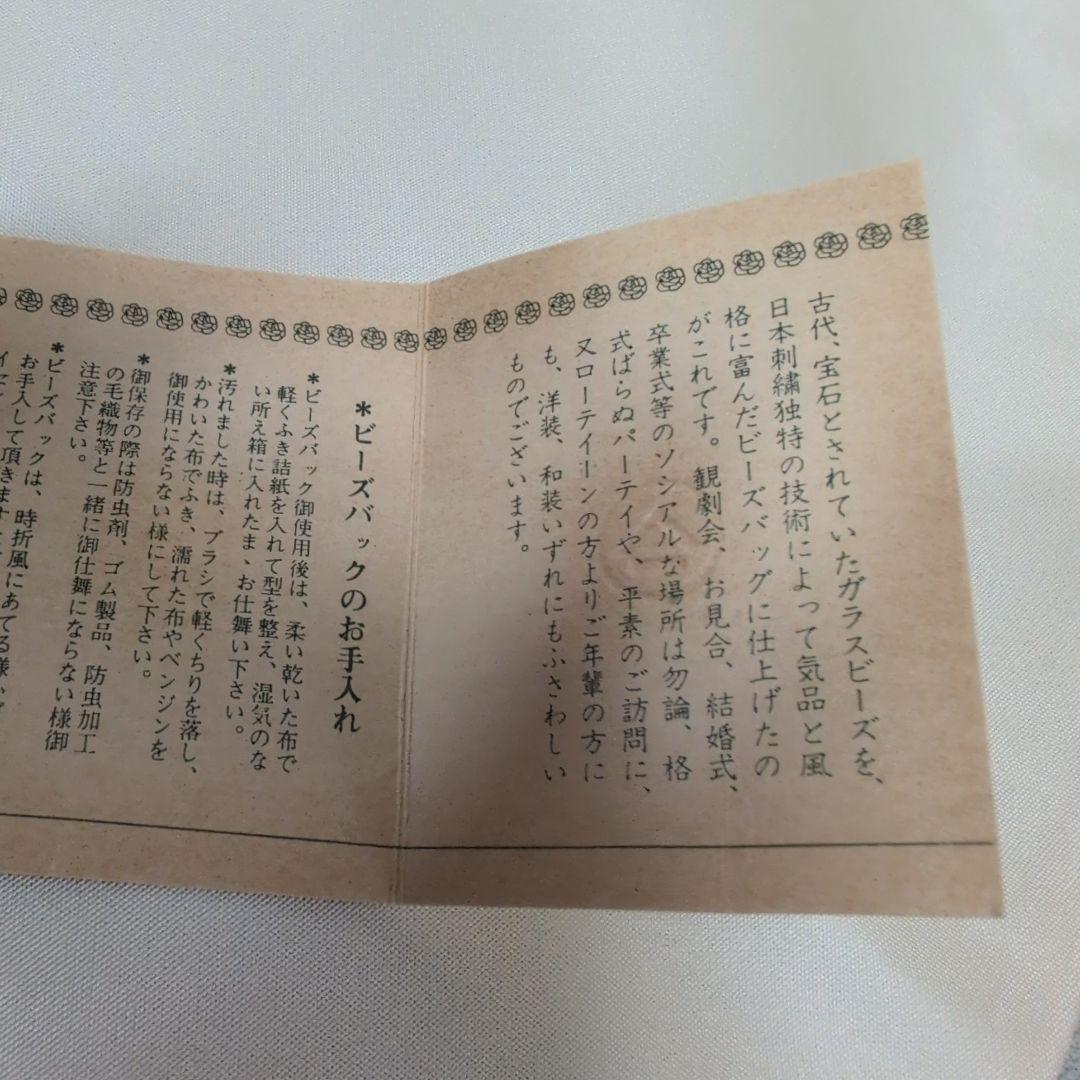 古代、宝石とされていたガラスビーズを、
日本刺繍独特の技術によって気品と風
格に富んだビーズバッグに仕上げたの
がこれです。観劇会、お見合、結婚式、
卒業式等のソシアルな場所は勿論、格
式ばらぬパーテイや、平素のご訪問に、
又ローテイーンの方よりご年輩の方に
も、洋装、和装いずれにもふさわしい
ものでございます。
*ビーズバックのお手入れ
*ビーズバック御使用後は、柔い乾いた布で
軽くふき詰紙を入れて型を整え、湿気のな
い所え箱に入れたまゝお仕舞い下さい。
*汚れました時は、ブラシで軽くちりを落し、
かわいた布でふき、濡れた布やベンジンを
御使用にならない様にして下さい。
*御保存の際は防虫剤、ゴム製品、防虫加工
の毛織物等と一緒に御仕舞にならない様御
注意下さい。
*ビーズバックは、時折風にあてる様、
お手入して頂きます